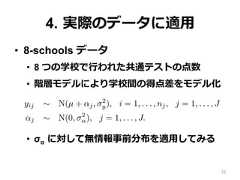 4. 実際のデータに適用
• 8-schools データ
• 8 つの学校で行われた共通テストの点数
• 階層モデルにより学校間の得点差をモデル化
y_{ij} ∼ N(μ + α_j, σ_y^2), i = 1, . . . , n_j, j = 1, . . . , J
α_j ∼ N(0, σ_α^2), j = 1, . . . , J.
• σ_α に対して無情報事前分布を適用してみる